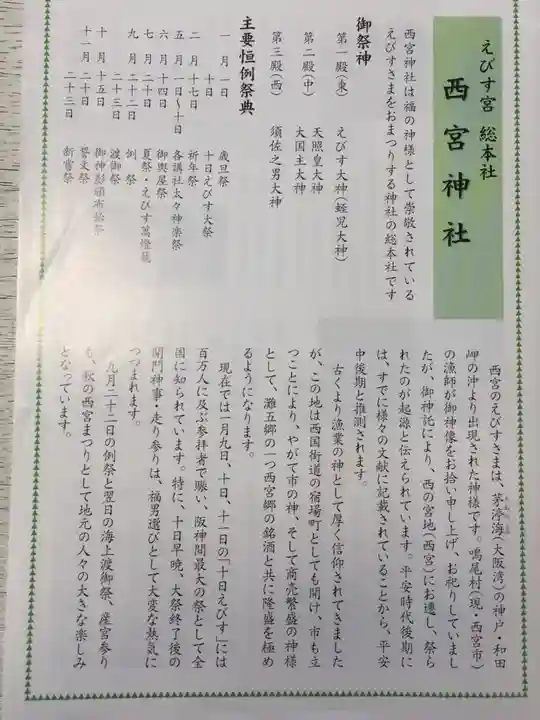 えびす宮 総本社
西宮神社
西宮神社は福の神様として崇敬されている
えびすさまをおまつりする神社の総本社です
御祭神
第一殿(東) えびす大神(蛭児大神)
第二殿(中) 天照皇大神
大国主大神
第三殿(西) 須佐之男大神
主要恒例祭典
一月一日 歳旦祭
十日 十日えびす大祭
二月十七日 祈年祭
五月一日〜十日 各講社太々神楽祭
六月十四日 御輿屋祭
七月二十日 夏祭・えびす萬燈籠
九月二十二日 例祭
二十三日 渡御祭
十月十五日 御神影頒布始祭
十一月二十日 誓文祭
二十三日 新嘗祭
西宮のえびすさまは、茅渟海(大阪湾)の神戸・和田
岬の沖より出現された神様です。鳴尾村(現・西宮市)
の漁師が御神像をお拾い申し上げ、お祀りしていまし
たが、御神託により、西の宮地(西宮)にお遷し、祭ら
れたのが起源と伝えられています。平安時代後期に
は、すでに様々の文献に記載されていることから、平安
中後期と推測されます。
古くより漁業の神として厚く信仰されてきました
が、この地は西国街道の宿場町としても開け、市も立
つことにより、やがて市の神、そして商売繁盛の神様
として、灘五郷の一つ西宮郷の銘酒と共に隆盛を極め
るようになります。
現在では一月九日、十日、十一日の「十日えびす」には
百万人に及ぶ参拝者で賑い、阪神間最大の祭として全
国に知られています。特に、十日早暁、大祭終了後の
開門神事・走り参りは、福男選びとして大変な熱気に
つつまれます。
九月二十二日の例祭と翌日の海上渡御祭、産宮参り
も、秋の西宮まつりとして地元の人々の大きな楽しみ
となっています。